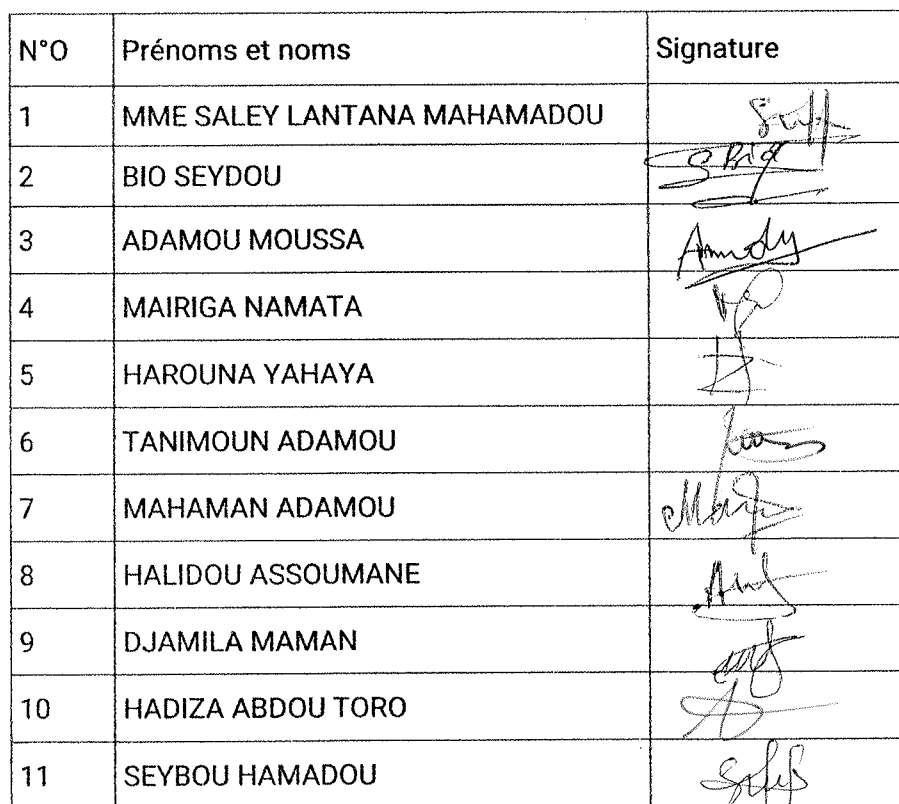 N°O Prénoms et noms Signature
1 MME SALEY LANTANA MAHAMADOU
2 BIO SEYDOU
3 ADAMOU MOUSSA
4 MAIRIGA NAMATA
5 HAROUNA YAHAYA
6 TANIMOUN ADAMOU
7 MAHAMAN ADAMOU
8 HALIDOU ASSOUMANE
9 DJAMILA MAMAN
10 HADIZA ABDOU TORO
11 SEYBOU HAMADOU